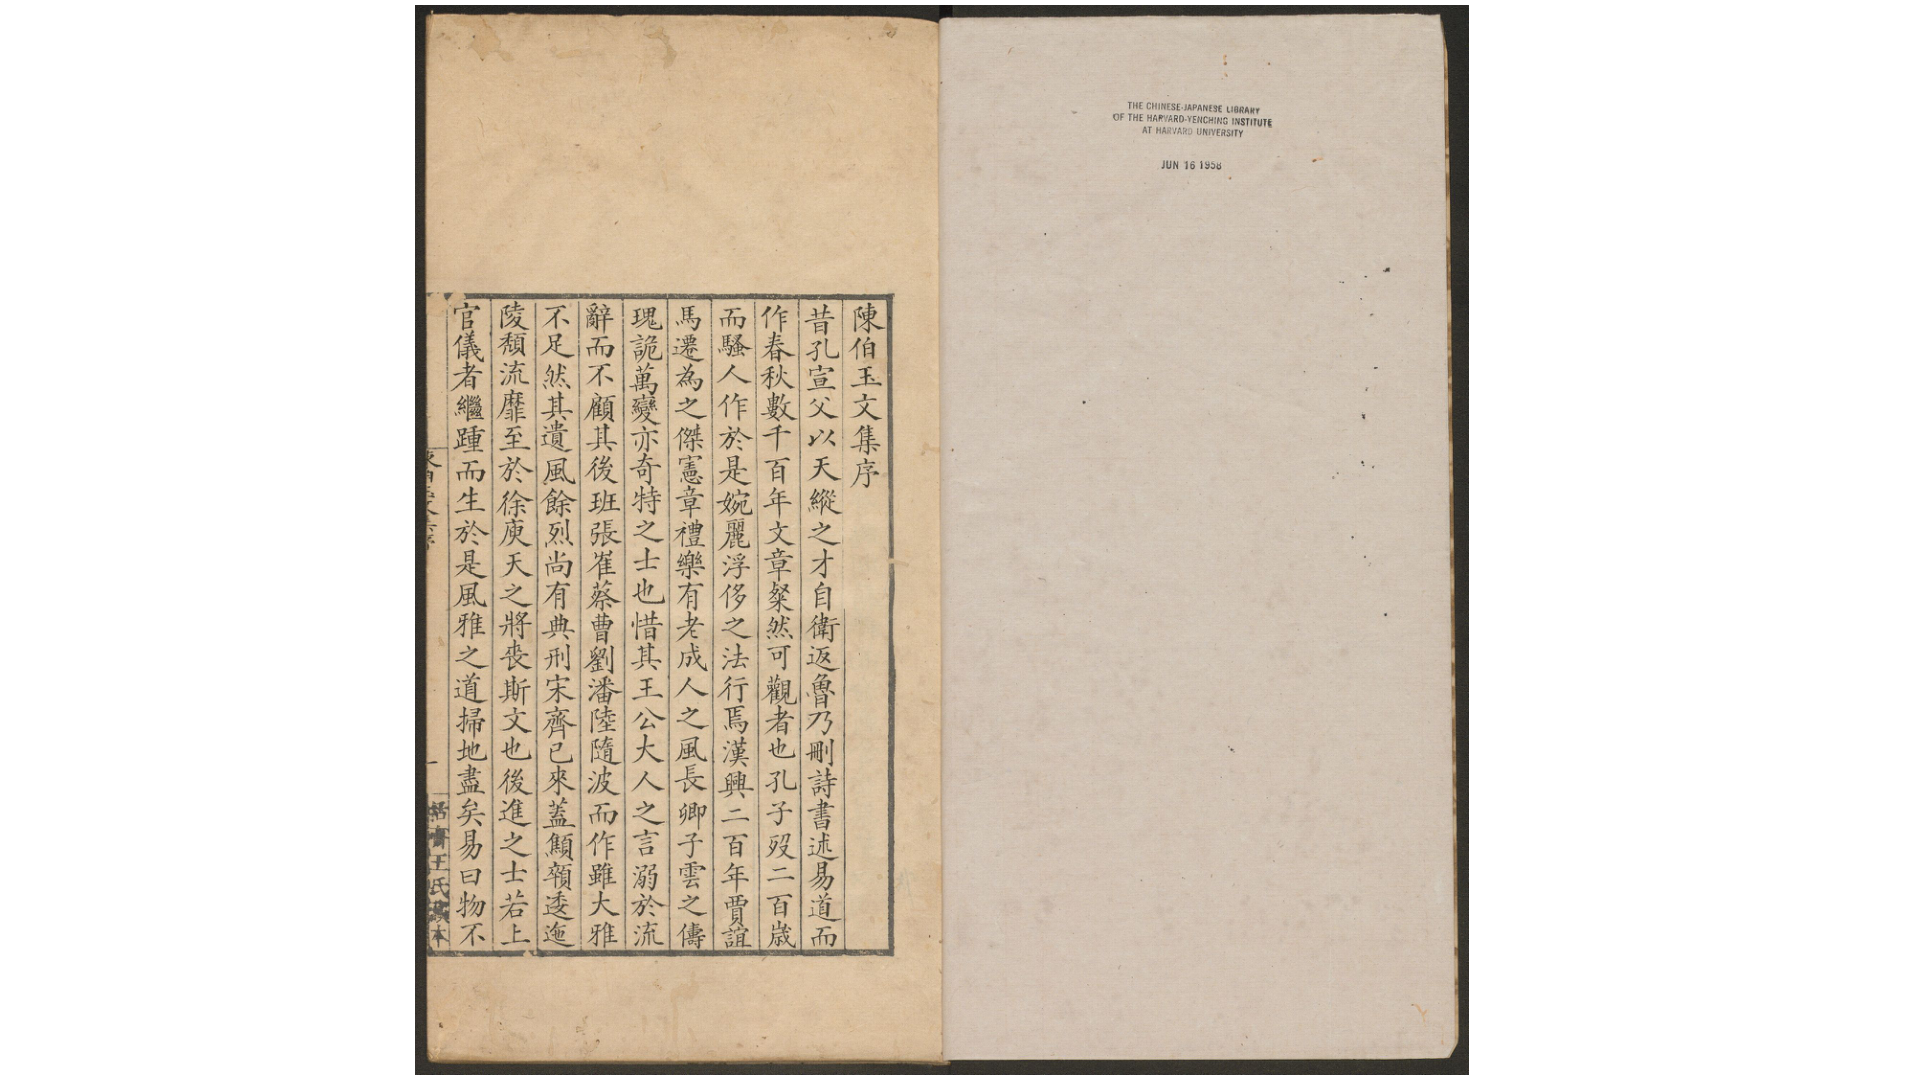 THE CHINESE-JAPANESE LIBRARY
OF THE HARVARD-YENCHING INSTITUTE
AT HARVARD UNIVERSITY
JUN 16 1958
陳伯玉文集序
昔孔宣父以天縱之才自衛返魯乃刪詩書述易道而
作春秋數千百年文章粲然可觀者也孔子歿二百歲
而騷人作於是婉麗浮侈之法行焉漢興二百年賈誼
馬遷為之傑憲章禮樂有老成人之風長卿子雲之儔
瑰詭萬變亦奇特之士也惜其王公大人之言溺於流
辭而不顧其後班張崔蔡曹劉潘陸隨波而作雖大雅
不足然其遺風餘烈尚有典刑宋齊已來蓋顦顇逶迤
陵頹流靡至於徐庾天之將喪斯文也後進之士若上
官儀者繼踵而生於是風雅之道掃地盡矣易曰物不
王氏
本